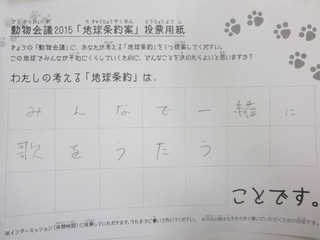 動物会議2015「地球条約案」投票用紙
きょうの「動物会議」に、あなたが考える「地球条約」を1つ提案してください。
この地球でみんなが平和にくらしていくために、どんなことを決めたらよいと思いますか?
わたしの考える「地球条約」は、
みんなで一緒に
歌をうたう
ことです。
※インターミッション(休憩時間)に投票していただきます。それまでに書いておいてください。